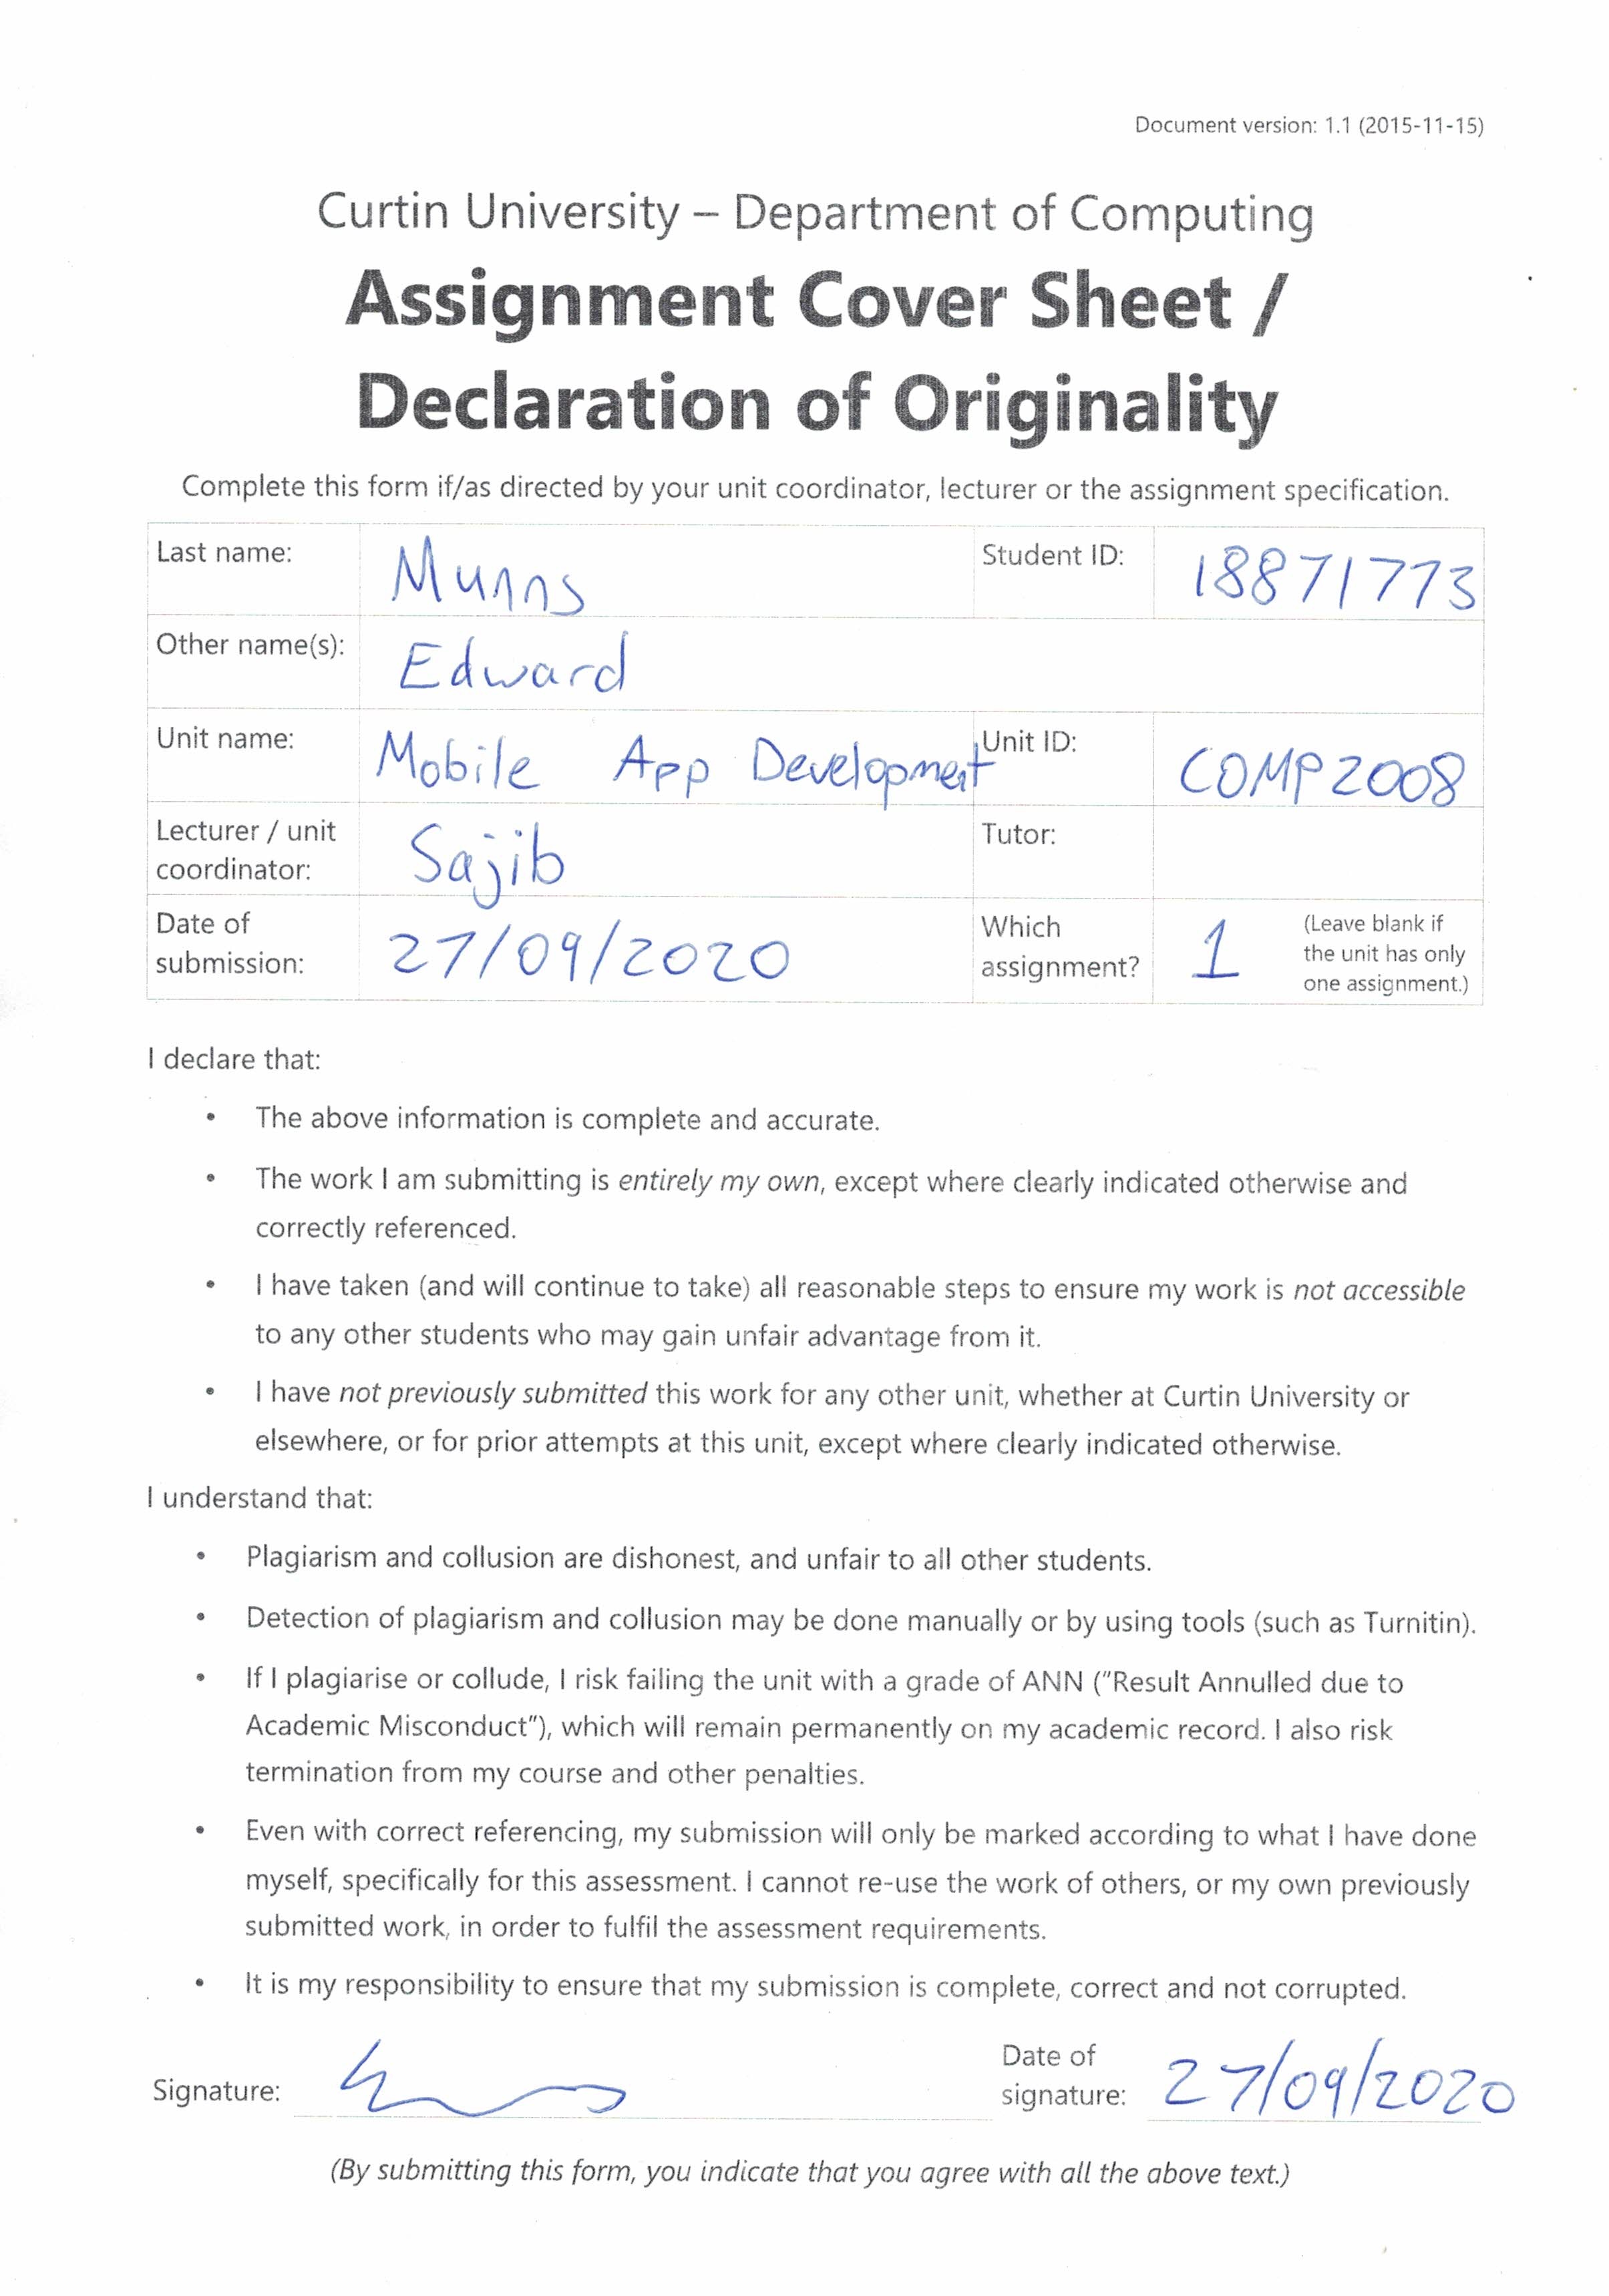 Document version: 1.1 (2015-11-15)
Curtin University – Department of Computing
Assignment Cover Sheet /
Declaration of Originality
Complete this form if/as directed by your unit coordinator, lecturer or the assignment specification.
Last name: Munns Student ID: 18871773
Other name(s): Edward
Unit name: Mobile App Development Unit ID: COMP2008
Lecturer / unit coordinator: Sajib Tutor:
Date of submission: 27/09/2020 Which assignment? 1 (Leave blank if the unit has only one assignment.)
I declare that:
• The above information is complete and accurate.
• The work I am submitting is entirely my own, except where clearly indicated otherwise and
correctly referenced.
• I have taken (and will continue to take) all reasonable steps to ensure my work is not accessible
to any other students who may gain unfair advantage from it.
• I have not previously submitted this work for any other unit, whether at Curtin University or
elsewhere, or for prior attempts at this unit, except where clearly indicated otherwise.
I understand that:
• Plagiarism and collusion are dishonest, and unfair to all other students.
• Detection of plagiarism and collusion may be done manually or by using tools (such as Turnitin).
• If I plagiarise or collude, I risk failing the unit with a grade of ANN ("Result Annulled due to
Academic Misconduct"), which will remain permanently on my academic record. I also risk
termination from my course and other penalties.
• Even with correct referencing, my submission will only be marked according to what I have done
myself, specifically for this assessment. I cannot re-use the work of others, or my own previously
submitted work, in order to fulfil the assessment requirements.
• It is my responsibility to ensure that my submission is complete, correct and not corrupted.
Signature: Date of signature: 27/09/2020
(By submitting this form, you indicate that you agree with all the above text.)